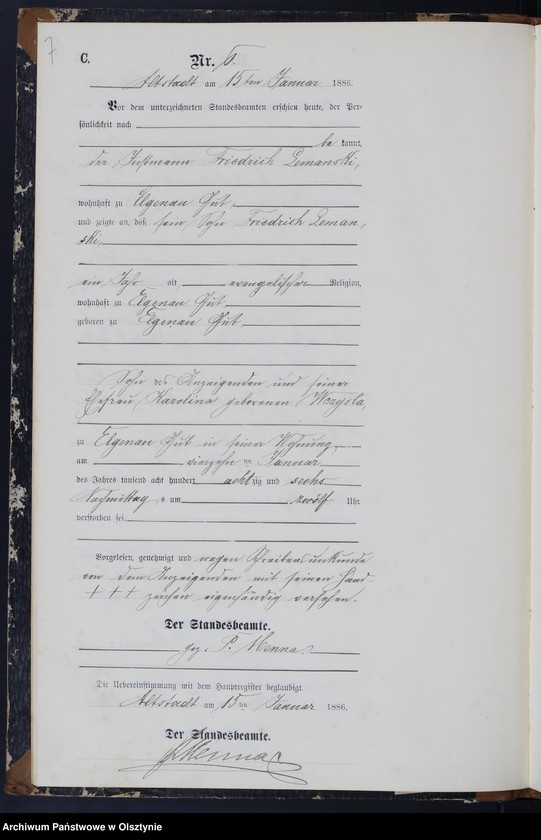 7
C.
Nr. 5.
Altstadt am 15ten Januar 1886.
Vor dem unterzeichneten Standesbeamten erschien heute, der Per-
sönlichkeit nach
be kannt,
der Instmann Friedrich Lemanski,
wohnhaft zu Elgenau Gut,
und zeigte an, daß sein Sohn Friedrich Leman-
ski,
ein Jahr alt, evangelischer Religion,
wohnhaft zu Elgenau Gut
geboren zu Elgenau Gut
Sohn des Anzeigenden und seiner
Ehefrau, Karolina geborenen
zu Elgenau Gut in seiner Wohnung
am vierzehn ten Januar
des Jahres tausend acht hundert achtzig und sechs
Nachmittag s um zwölf Uhr
verstorben sei.
Vorgelesen, genehmigt und wegen Schreibensunkunde
von dem Anzeigenden mit seinen Hand
+ + + zeichen eigenhändig versehen.
Der Standesbeamte.
gez. P. Menna.
Die Uebereinstimmung mit dem Hauptregister beglaubigt.
Altstadt am 15ten Januar 1886.
Der Standesbeamte.
P Menna
Archiwum Państwowe w Olsztynie